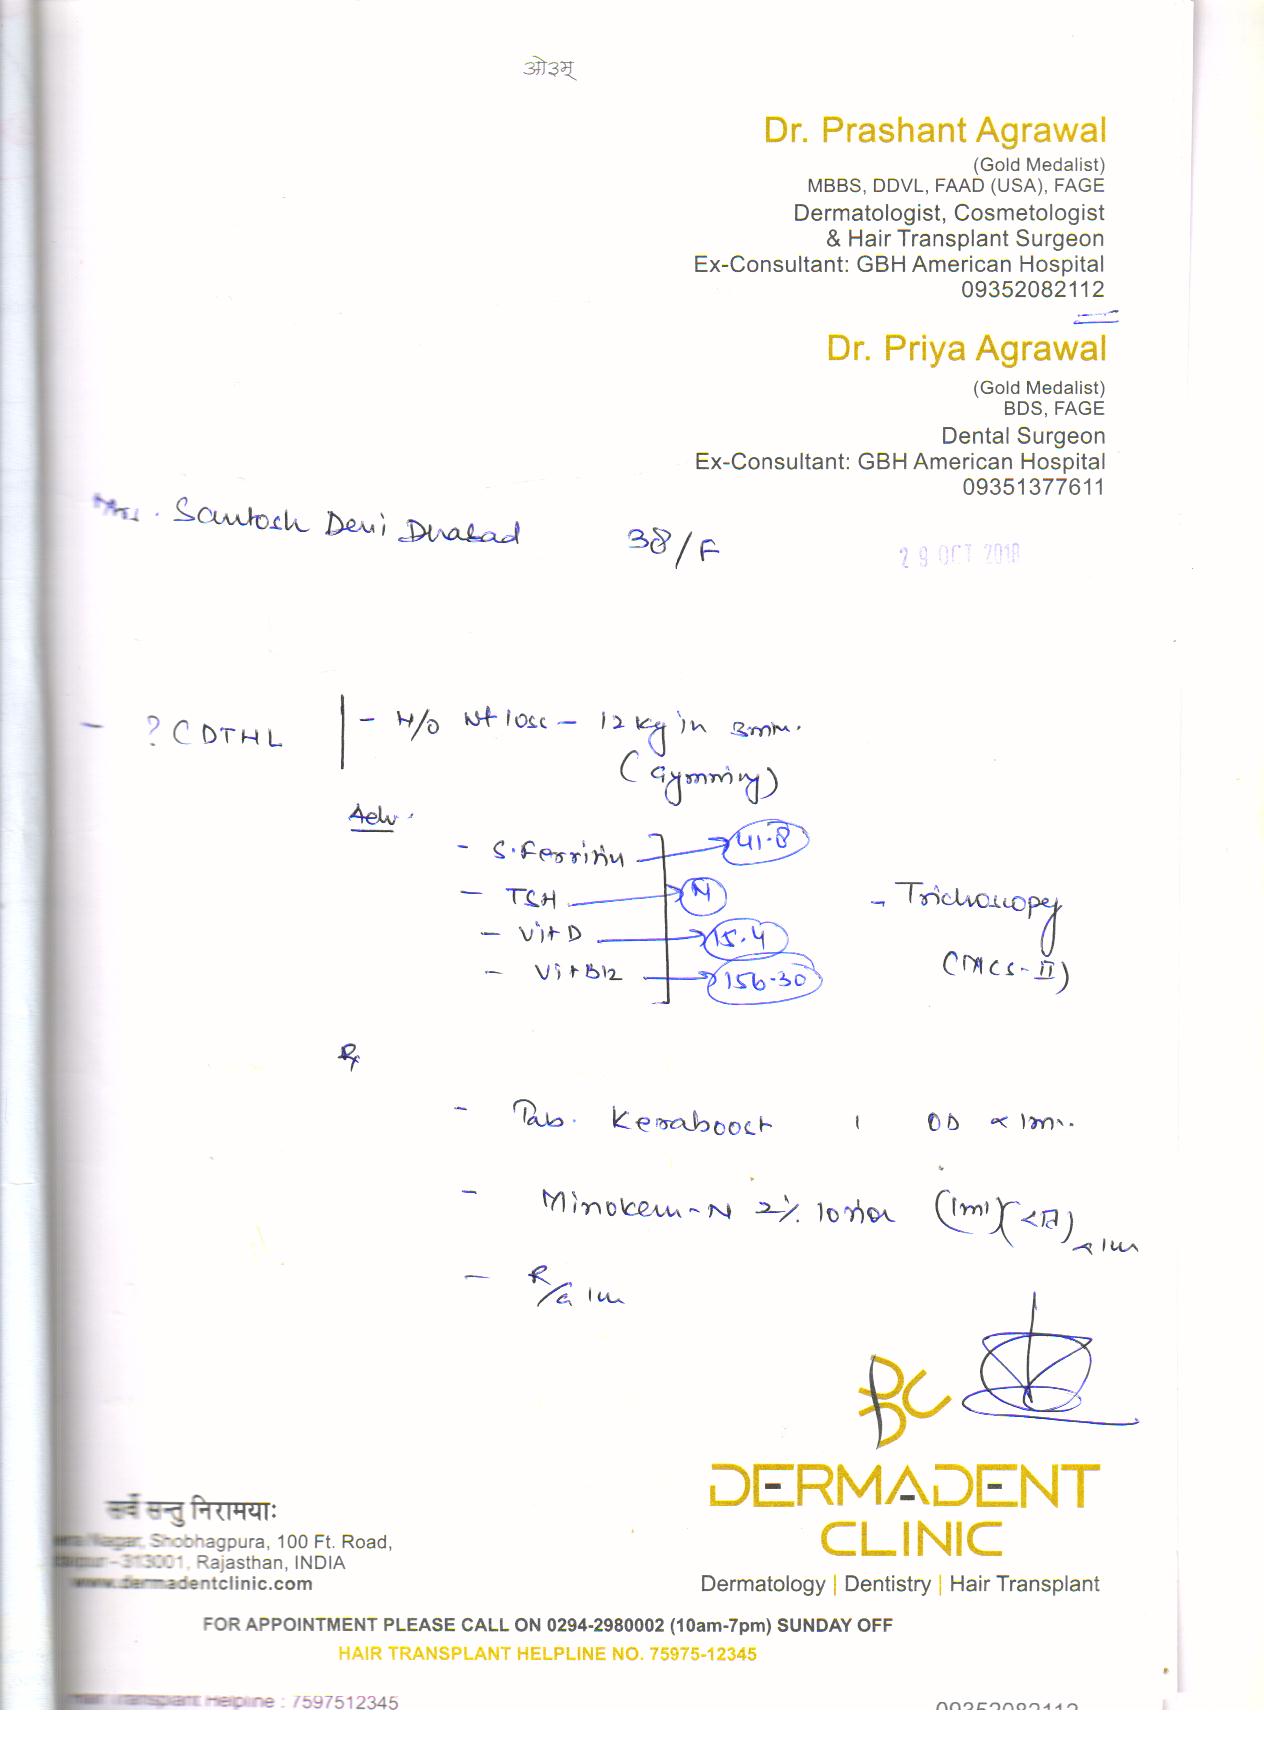 ओ३म्
Dr. Prashant Agrawal
(Gold Medalist)
MBBS, DDVL, FAAD (USA), FAGE
Dermatologist, Cosmetologist
& Hair Transplant Surgeon
Ex-Consultant: GBH American Hospital
09352082112
Dr. Priya Agrawal
(Gold Medalist)
BDS, FAGE
Dental Surgeon
Ex-Consultant: GBH American Hospital
09351377611
Mrs. Santosh Devi 38/F
29 OCT 2018
- ? CDTHL - H/O Wt loss - 12 kg in 3m.
(Gymming)
Adv.
- S. Ferritin 41.8
- TSH N
- Vit D 15.4
- Vit B12 156.30
- Trichoscopy
R
- Tab. Keraboost 1 OD x 1m
- Minokem-N 2% lotion (1ml)
- R/A 1m
BC
DERMADENT
CLINIC
Dermatology | Dentistry | Hair Transplant
सर्वे सन्तु निरामयाः
Nagar, Shobhagpura, 100 Ft. Road,
313001, Rajasthan, INDIA
www.dermadentclinic.com
FOR APPOINTMENT PLEASE CALL ON 0294-2980002 (10am-7pm) SUNDAY OFF
HAIR TRANSPLANT HELPLINE NO. 75975-12345
Hair Transplant Helpline : 7597512345
09352082112